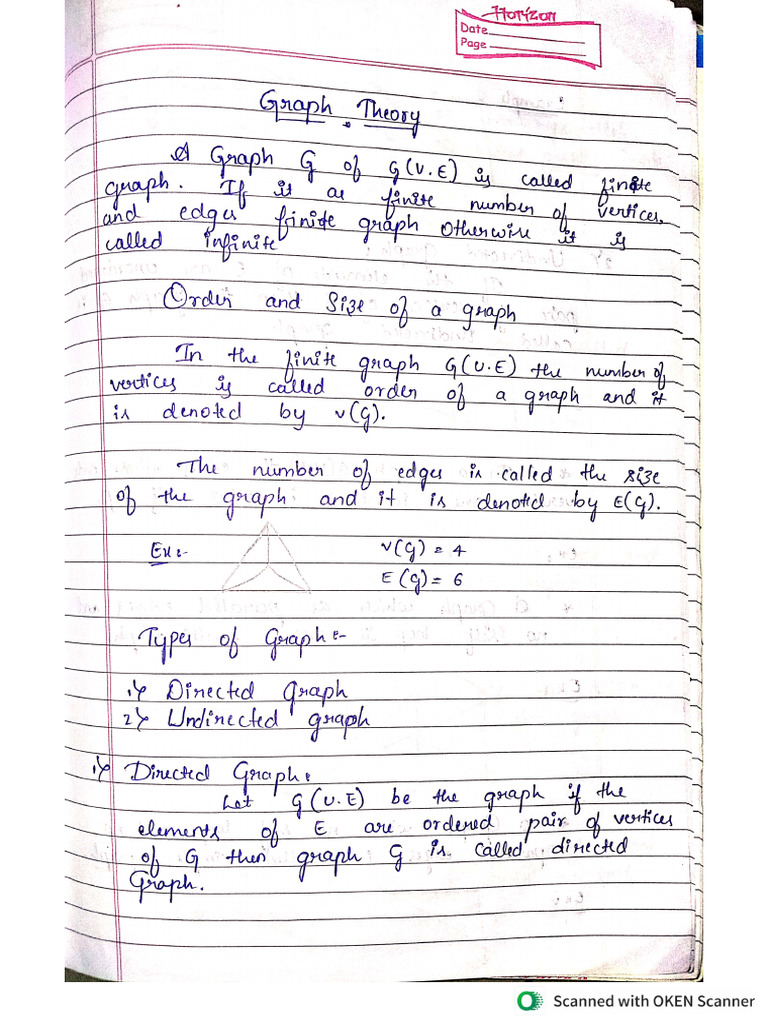 Horizon
Date
Page
Graph Theory
A Graph G of G(V.E) is called finite
graph. If it as finite number of vertices,
and edges finite graph otherwise it is
called infinite
Order and Size of a graph
In the finite graph G(V.E) the number of
vertices is called order of a graph and it
is denoted by V(G).
The number of edges is called the size
of the graph and it is denoted by E(G).
Ex:-
V(G) = 4
E(G) = 6
Types of Graph:-
1) Directed Graph
2) Undirected graph
1) Directed Graph:
Let G(V.E) be the graph if the
elements of E are ordered pair of vertices
of G then graph G is called directed
Graph.
Scanned with OKEN Scanner